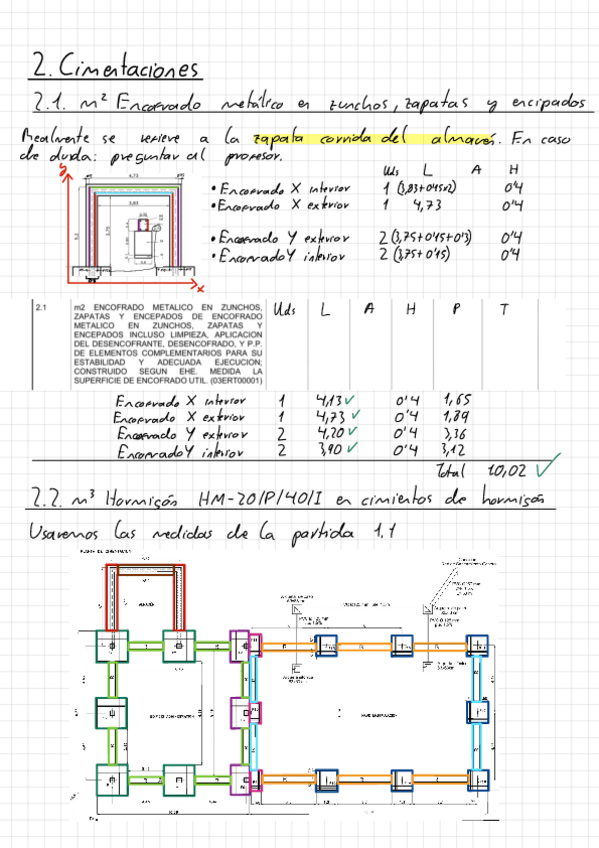 2. Cimentaciones
2.1. m² Encofrado metálico en zunchos, zapatas y encipados
Realmente se refiere a la zapata corrida del almacén. En caso
de duda: preguntar al profesor.
Uds L A H
• Encofrado X interior 1 (3,83+0'15x2) 0'4
• Encofrado X exterior 1 4,73 0'4
• Encofrado Y exterior 2 (3,75+0'15+0'3) 0'4
• Encofrado Y interior 2 (3,75+0'15) 0'4
y
4,73
3,83
x
2.1 m2 ENCOFRADO METALICO EN ZUNCHOS, Uds L A H P T
ZAPATAS Y ENCEPADOS DE ENCOFRADO
METALICO EN ZUNCHOS, ZAPATAS Y
ENCEPADOS INCLUSO LIMPIEZA, APLICACION
DEL DESENCOFRANTE, DESENCOFRADO, Y P.P.
DE ELEMENTOS COMPLEMENTARIOS PARA SU
ESTABILIDAD Y ADECUADA EJECUCION;
CONSTRUIDO SEGUN EHE. MEDIDA LA
SUPERFICIE DE ENCOFRADO UTIL. (03ERT00001)
Encofrado X interior 1 4,13✓ 0'4 1,65
Encofrado X exterior 1 4,73✓ 0'4 1,89
Encofrado Y exterior 2 4,20✓ 0'4 3,36
Encofrado Y interior 2 3,90✓ 0'4 3,12
Total 10,02 ✓
2.2. m³ Hormigón HM-20/P/40/I en cimientos de hormigón
Usaremos las medidas de la partida 1.1
PLANTA DE CIMENTACION